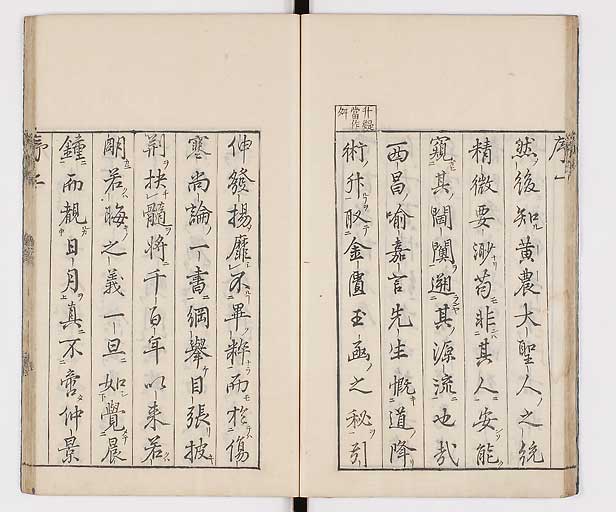 序一
然後知黄農大聖人之統
精微要渺苟非其人安能
窺其閫闑遡其源流也哉
西昌喻嘉言先生慨道降
術升取金匱玉函之秘引
升疑
當作
伸發揚靡不畢粹而於傷
寒尚論一書綱舉目張披
荆抉髓將千百年以来若
明若晦之義一旦如覺晨
鐘而覩日月真不啻仲景
序二